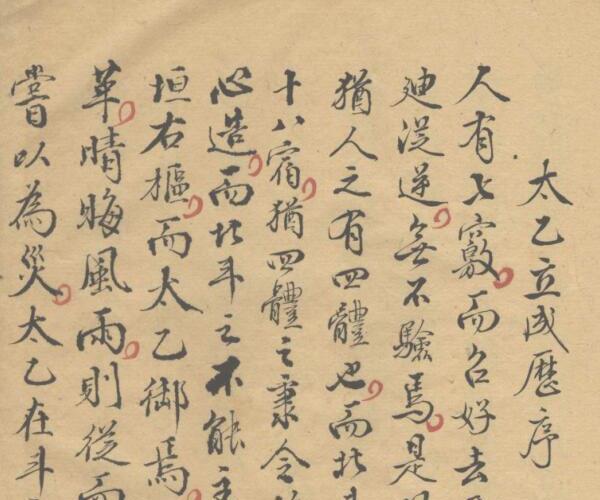 太乙立成歷序
人有七竅而召好去
廸從逆無不驗焉是
猶人之有四體也而北
十八宿猶四體之秉令
心造而北斗之不能主
垣右樞而太乙御焉
革晴晦風雨則從而
嘗以為災太乙在斗